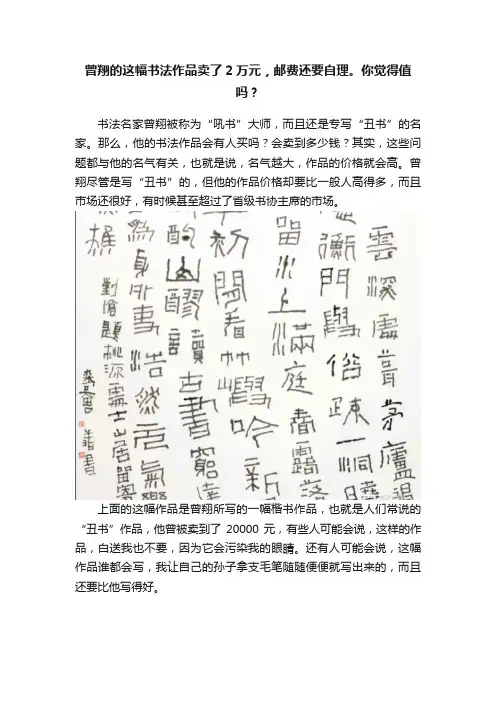 曾翔的这幅书法作品卖了2万元，邮费还要自理。你觉得值
吗？
书法名家曾翔被称为“吼书”大师，而且还是专写“丑书”的名
家。那么，他的书法作品会有人买吗？会卖到多少钱？其实，这些问
题都与他的名气有关，也就是说，名气越大，作品的价格就会高。曾
翔尽管是写“丑书”的，但他的作品价格却要比一般人高得多，而且
市场还很好，有时候甚至超过了省级书协主席的市场。
雲深處葺茅廬退
衡門與俗疎一洞曉
留水上滿庭春露落
初閒看竹嶼吟新
酌山醪讀古書窮達
為身外事浩然元氣樂
樵
劉滄題桃源處士山居留寄
上面的这幅作品是曾翔所写的一幅楷书作品，也就是人们常说的
“丑书”作品，他曾被卖到了20000元，有些人可能会说，这样的作
品，白送我也不要，因为它会污染我的眼睛。还有人可能会说，这幅
作品谁都会写，我让自己的孙子拿支毛笔随随便便就写出来的，而且
还要比他写得好。